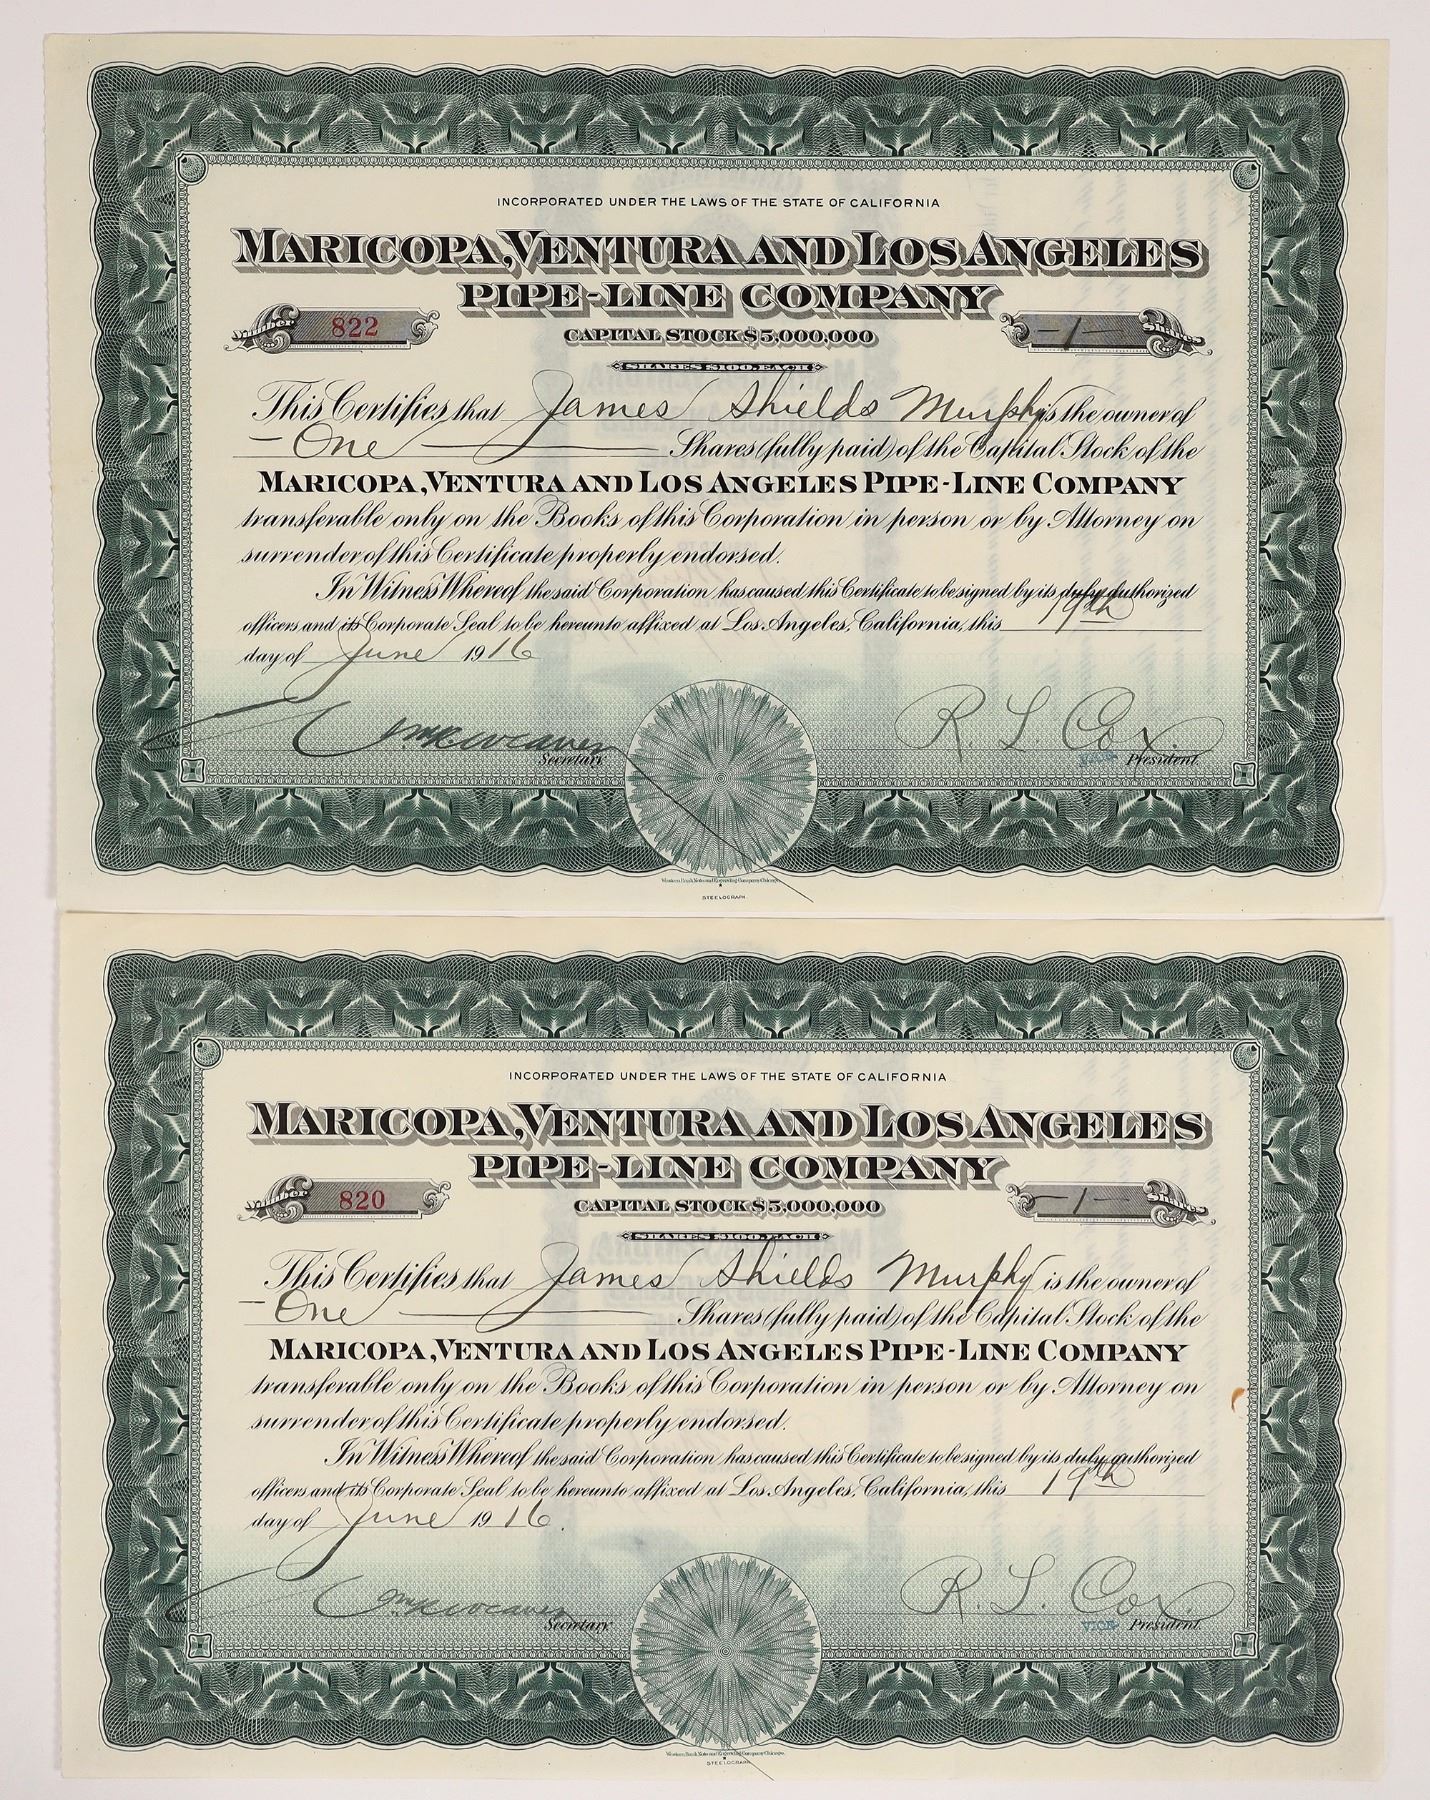 INCORPORATED UNDER THE LAWS OF THE STATE OF CALIFORNIA
MARICOPA, VENTURA AND LOS ANGELES
PIPE-LINE COMPANY
Number 822 -1- Shares
CAPITAL STOCK $5,000,000
SHARES $100, EACH
This Certifies that James Shields Murphy is the owner of
- One Shares (fully paid) of the Capital Stock of the
MARICOPA, VENTURA AND LOS ANGELES PIPE-LINE COMPANY
transferable only on the Books of this Corporation in person or by Attorney on
surrender of this Certificate properly endorsed.
In Witness Whereof the said Corporation has caused this Certificate to be signed by its duly authorized
officers and its Corporate Seal to be hereunto affixed at Los Angeles, California, this 19th
day of June 1916
R L Cox
Secretary VICE President.
Western Bank Note and Engraving Company Chicago.
STEELOGRAPH.
INCORPORATED UNDER THE LAWS OF THE STATE OF CALIFORNIA
MARICOPA, VENTURA AND LOS ANGELES
PIPE-LINE COMPANY
Number 820 -1- Shares
CAPITAL STOCK $5,000,000
SHARES $100, EACH
This Certifies that James Shields Murphy is the owner of
- One Shares (fully paid) of the Capital Stock of the
MARICOPA, VENTURA AND LOS ANGELES PIPE-LINE COMPANY
transferable only on the Books of this Corporation in person or by Attorney on
surrender of this Certificate properly endorsed.
In Witness Whereof the said Corporation has caused this Certificate to be signed by its duly authorized
officers and its Corporate Seal to be hereunto affixed at Los Angeles, California, this 19th
day of June 1916.
R. L. Cox
Secretary VICE President.
Western Bank Note and Engraving Company Chicago.
STEELOGRAPH